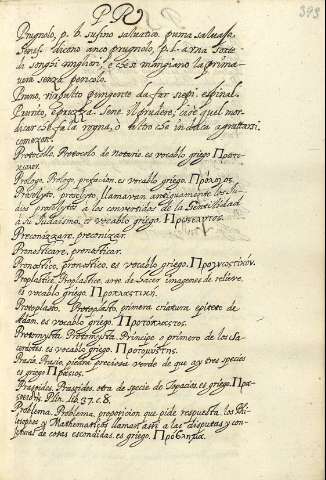 P R
393
Prugnolo, p. b. susino saluatico. puma saluaxe.
Parest. diceno anco prugnolo, p. l. a vna sorte
di fonghi migliori, e che si mangiano la prima=
uera senza pericolo.
Pruno, virgulto pungente da far siepi. espinal.
Prurito, e pruzza. Sene il prudere, cioè quel mor=
dicar che fa la rogna, o altro che induca a grattarsi.
comezon.
Protocollo. Protocolo de Notario. es vocablo griego. Προτο=
Prologo. Prologo, prefacion. es vocablo griego. Πρόλογος.
Proselyto, proselyto, llamavan antiguamente los Ju=
dios proselytos a los convertidos de la Gentilidad
a su Judaismo, es vocablo griego. Προσελυτος.
Preconizzare, preconizar.
Pronosticare, pronosticar.
Pronostico, pronostico. es vocablo griego. Προγνωστικόν.
Proplastice, Proplastice, arte de sacar imagenes de relieve.
es vocablo griego. Προπλαστική.
Protoplasto. Protoplasto, primera criatura epiteto de
Adam. es vocablo griego. Προτόπλαστος.
Protomysta. Protomysta. Principe o primero de los Sa=
cerdotes. es vocablo griego. Προτομύστης.
Prasio. Prasio, piedra preciosa verde de que ay tres species
es griego Πράσιος.
Praspides. Praspides. otra de specie de Topacios. es griego. Πρα=
Plin. lib. 37. c. 8.
Problema. Problema, proposicion que pide respuesta. los Phi=
losophos y Mathematicos llaman assi a las disputas y con=
jeturas de cosas escondidas. es griego. Προβλημα.